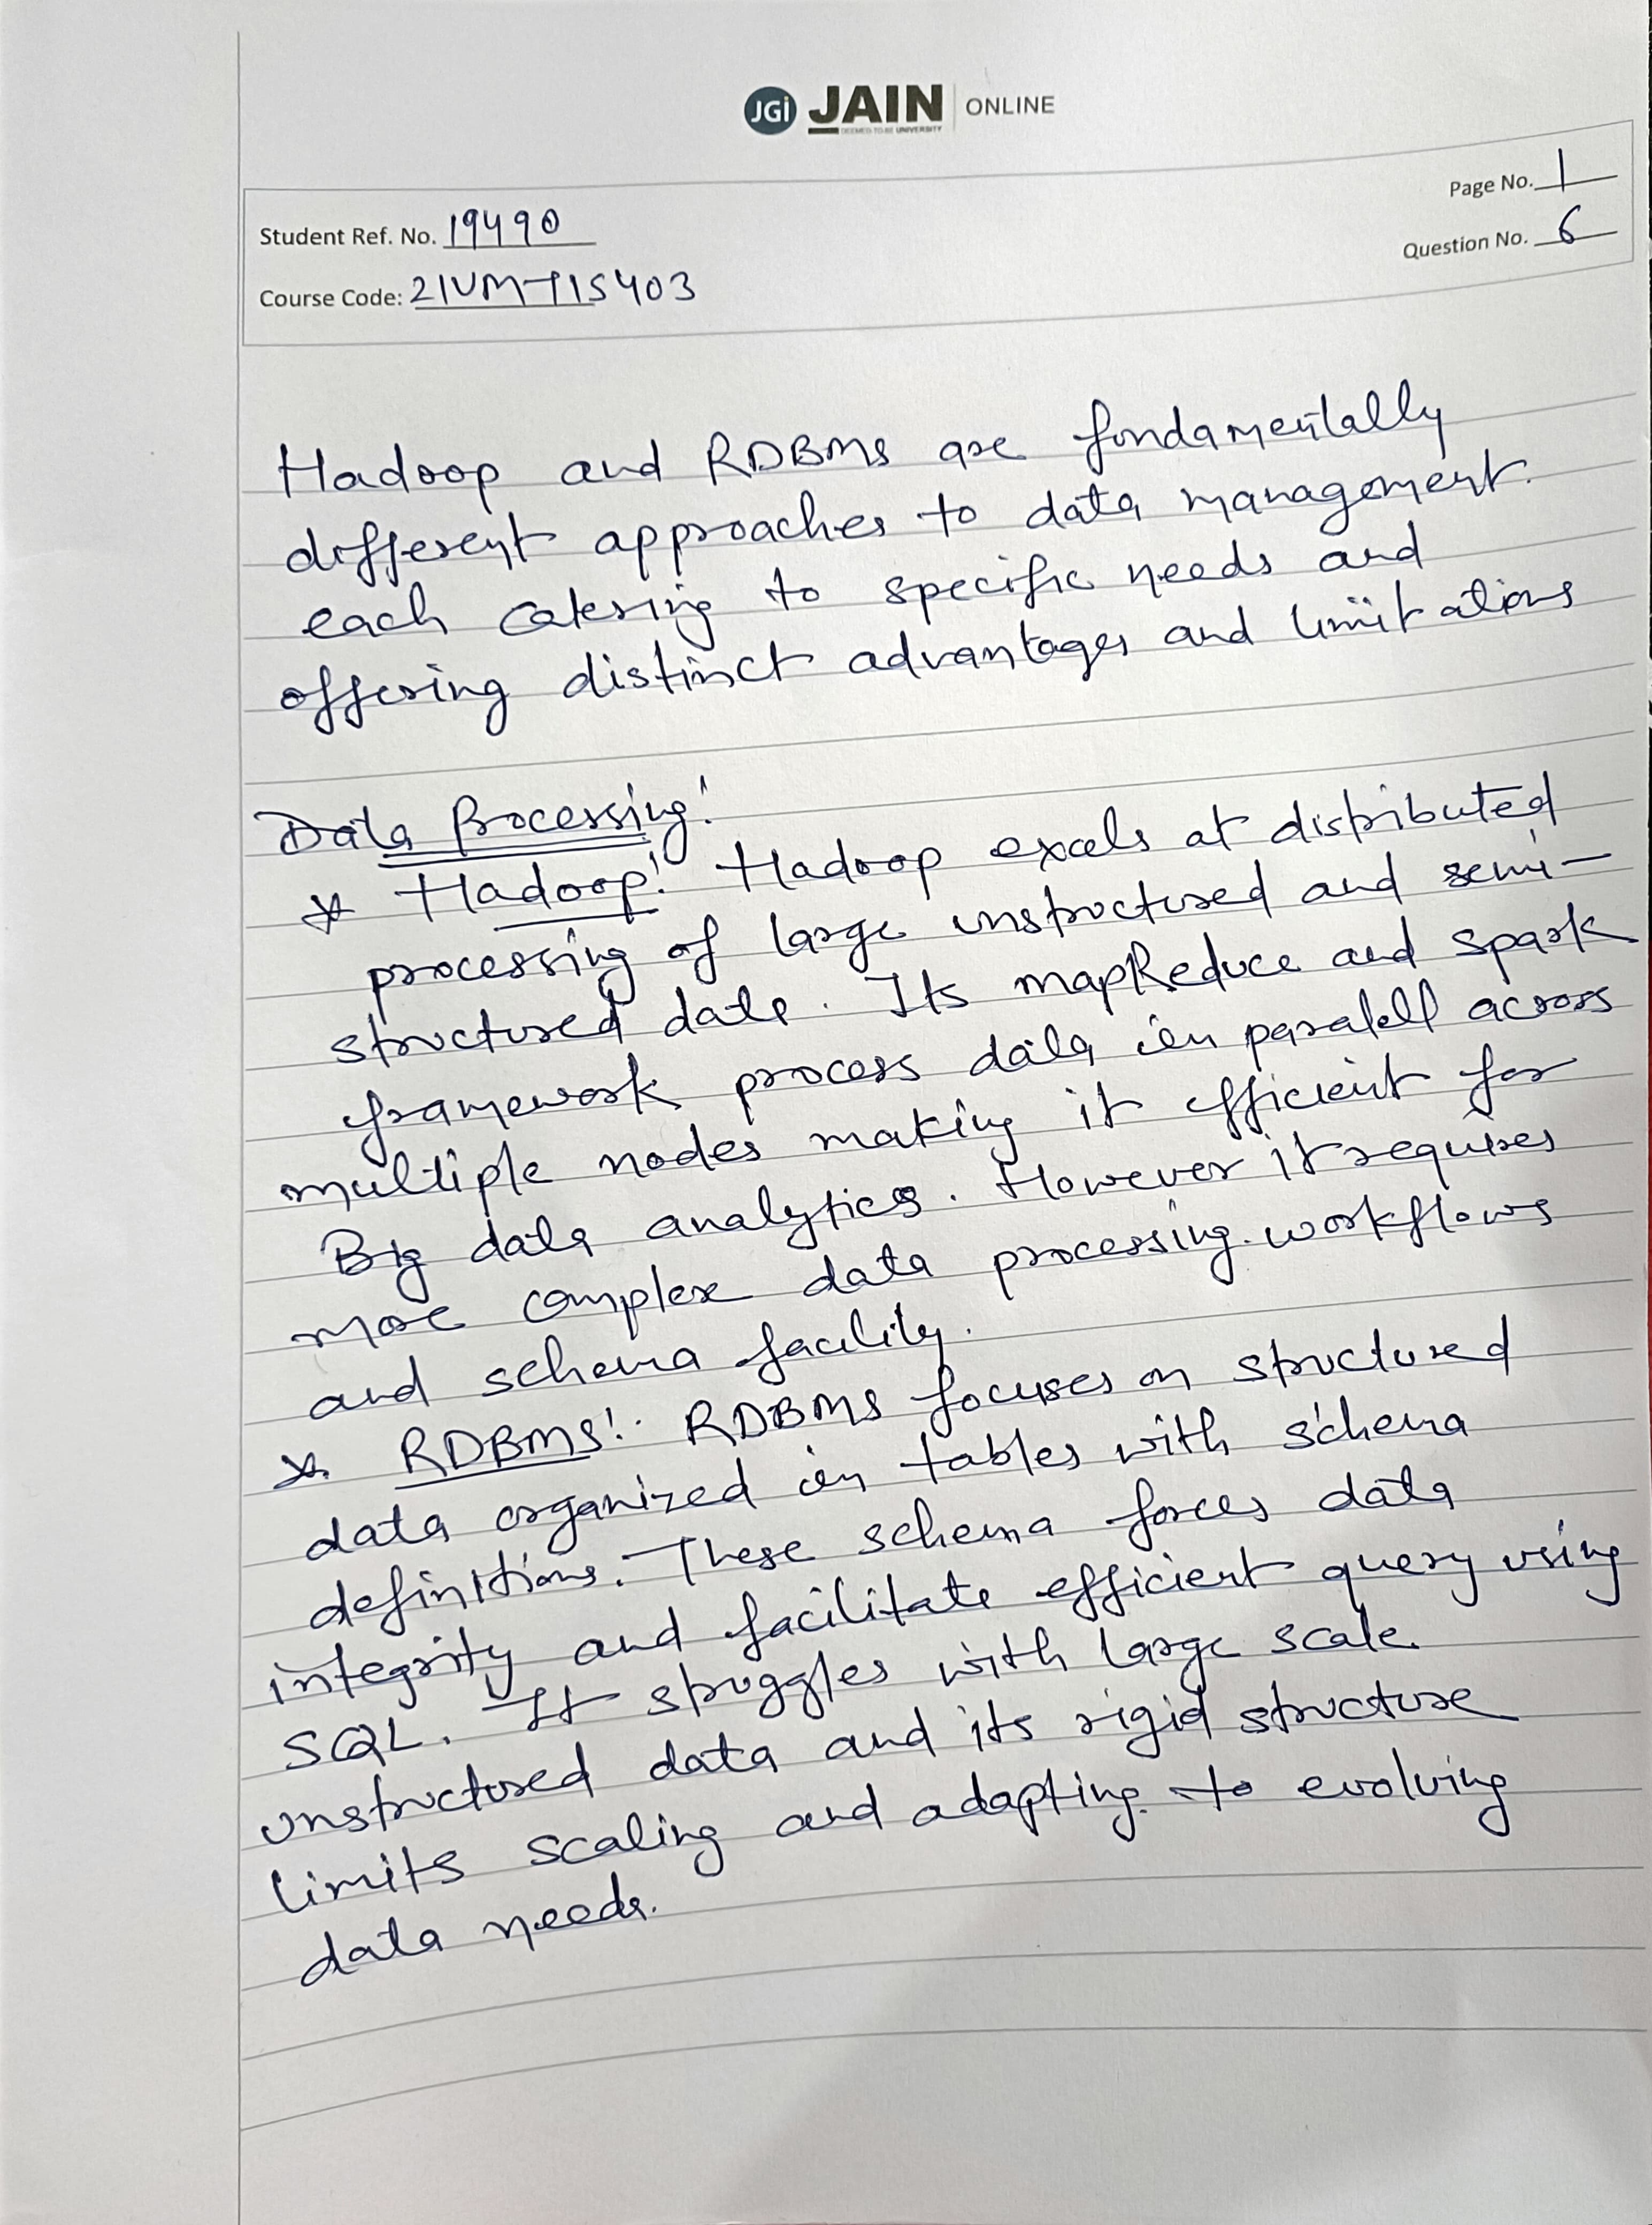 JGi JAIN ONLINE
DEEMED-TO-BE UNIVERSITY
Page No. 1
Student Ref. No. 19490
Question No. 6
Course Code: 21VMT1S403
Hadoop and RDBMS are fundamentally
different approaches to data management.
each catering to specific needs and
offering distinct advantages and limitations
Data Processing:
* Hadoop: Hadoop excels at distributed
processing of large unstructured and semi-
structured data. Its mapReduce and spark
framework process data in paralell across
multiple nodes making it efficient for
Big data analytics. However it requires
more complex data processing workflows
and schema facility.
* RDBMS: RDBMS focuses on structured
data organized in tables with schema
definitions. These schema forces data
integrity and facilitate efficient query using
SQL. It struggles with large scale
unstructured data and its rigid structure
limits scaling and adapting to evolving
data needs.